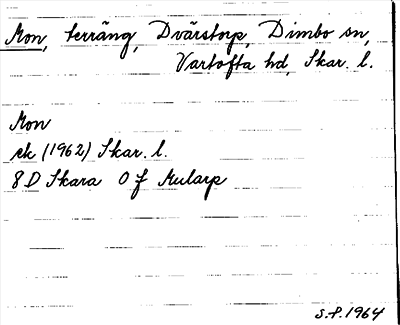 Mon, terräng, Dvärstorp, Dimbo sn,
Vartofta hd, Skar. l.
Mon
ek (1962) Skar. l.
8 D Skara 0 f Mularp
S.F. 1964